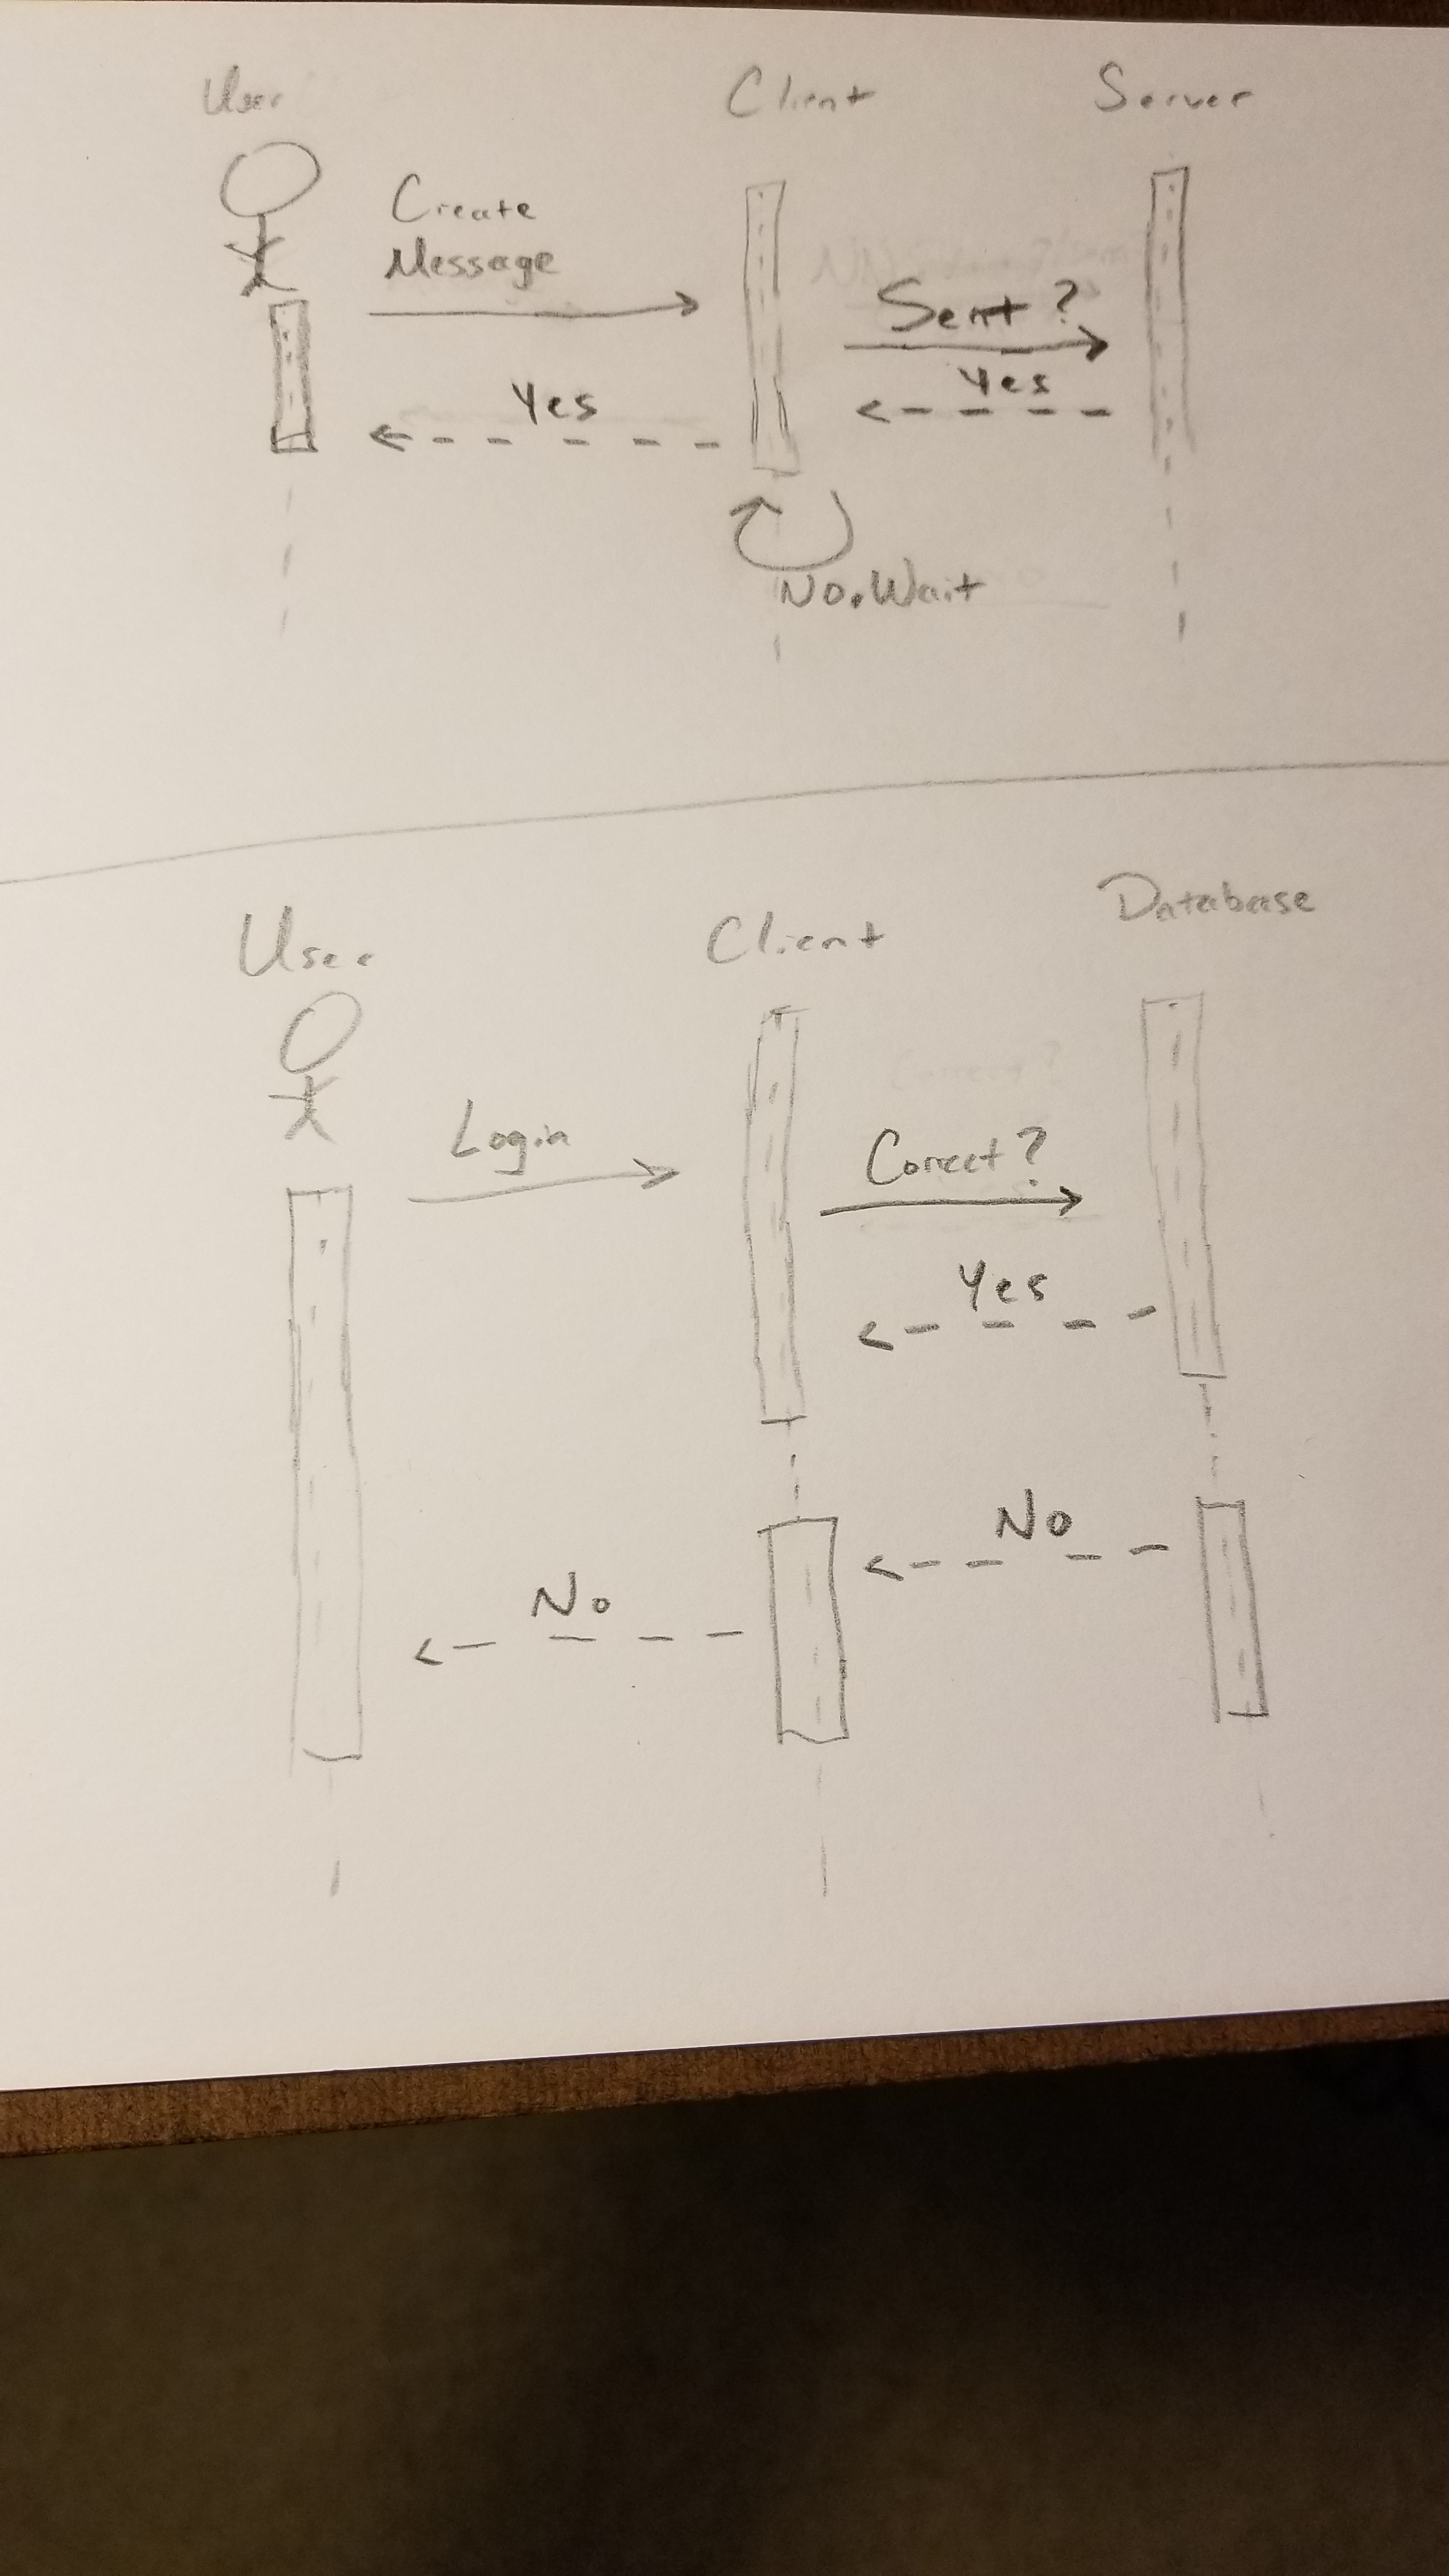 User
Client
Server
Create
Message
Sent?
Yes
Yes
No. Wait
User
Client
Database
Login
Correct?
Yes
No
No